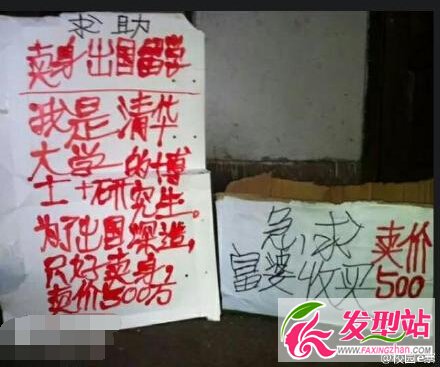 求助
卖身出国留学
我是清华
大学的博
士+研究生。
为了出国深造,
只好卖身,
卖价500万
急求
富婆收买
卖价
500
发型站
WWW.FAXINGZHAN.COM